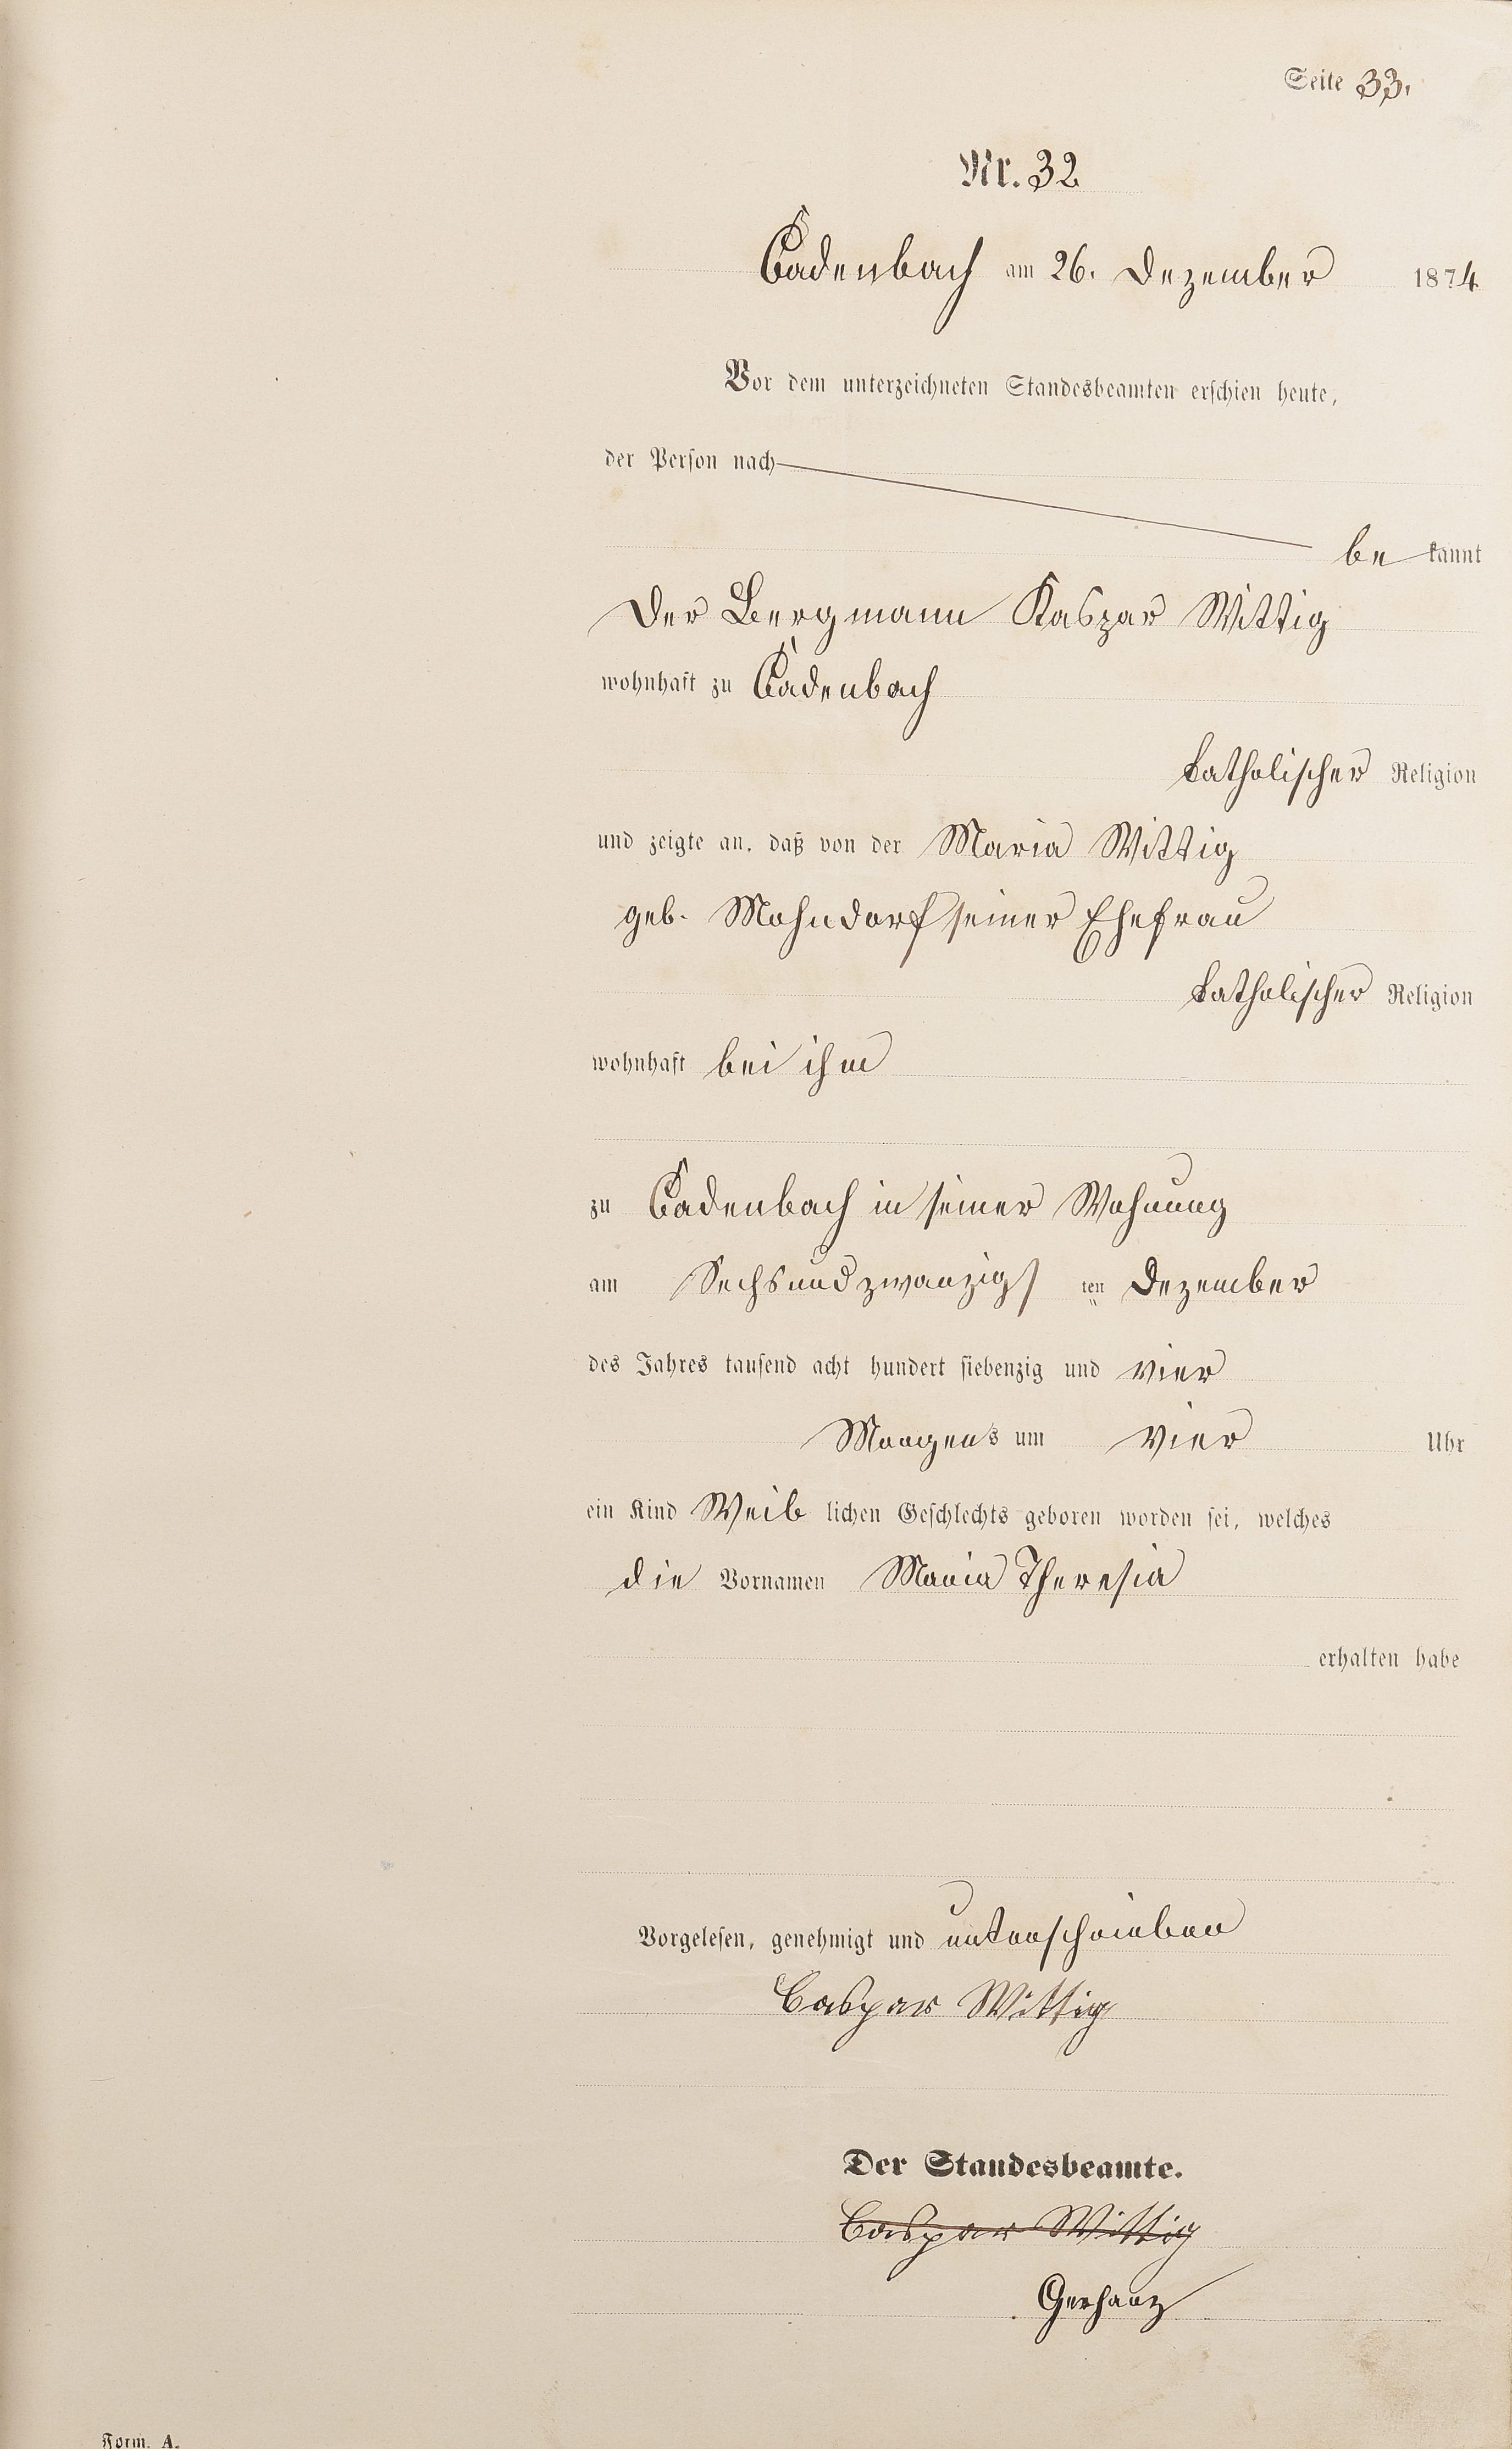 Seite 33.
Nr. 32
Cadenbach am 26. Dezember 1874
Vor dem unterzeichneten Standesbeamten erschien heute,
der Person nach
be kannt
Der Bergmann Kaspar Wittig
wohnhaft zu Cadenbach
katholischer Religion
und zeigte an, daß von der Maria Wittig
geb. Mohndorf seiner Ehefrau
katholischer Religion
wohnhaft bei ihm
zu Cadenbach in seiner Wohnung
am Sechsundzwanzigs ten Dezember
des Jahres tausend acht hundert siebenzig und vier
Morgens um vier Uhr
ein Kind Weib lichen Geschlechts geboren worden sei, welches
die Vornamen Maria Theresia
erhalten habe
Vorgelesen, genehmigt und unterschrieben
Caspar Wittig
Der Standesbeamte.
Caspar Wittig
Gerharz
Form. A.